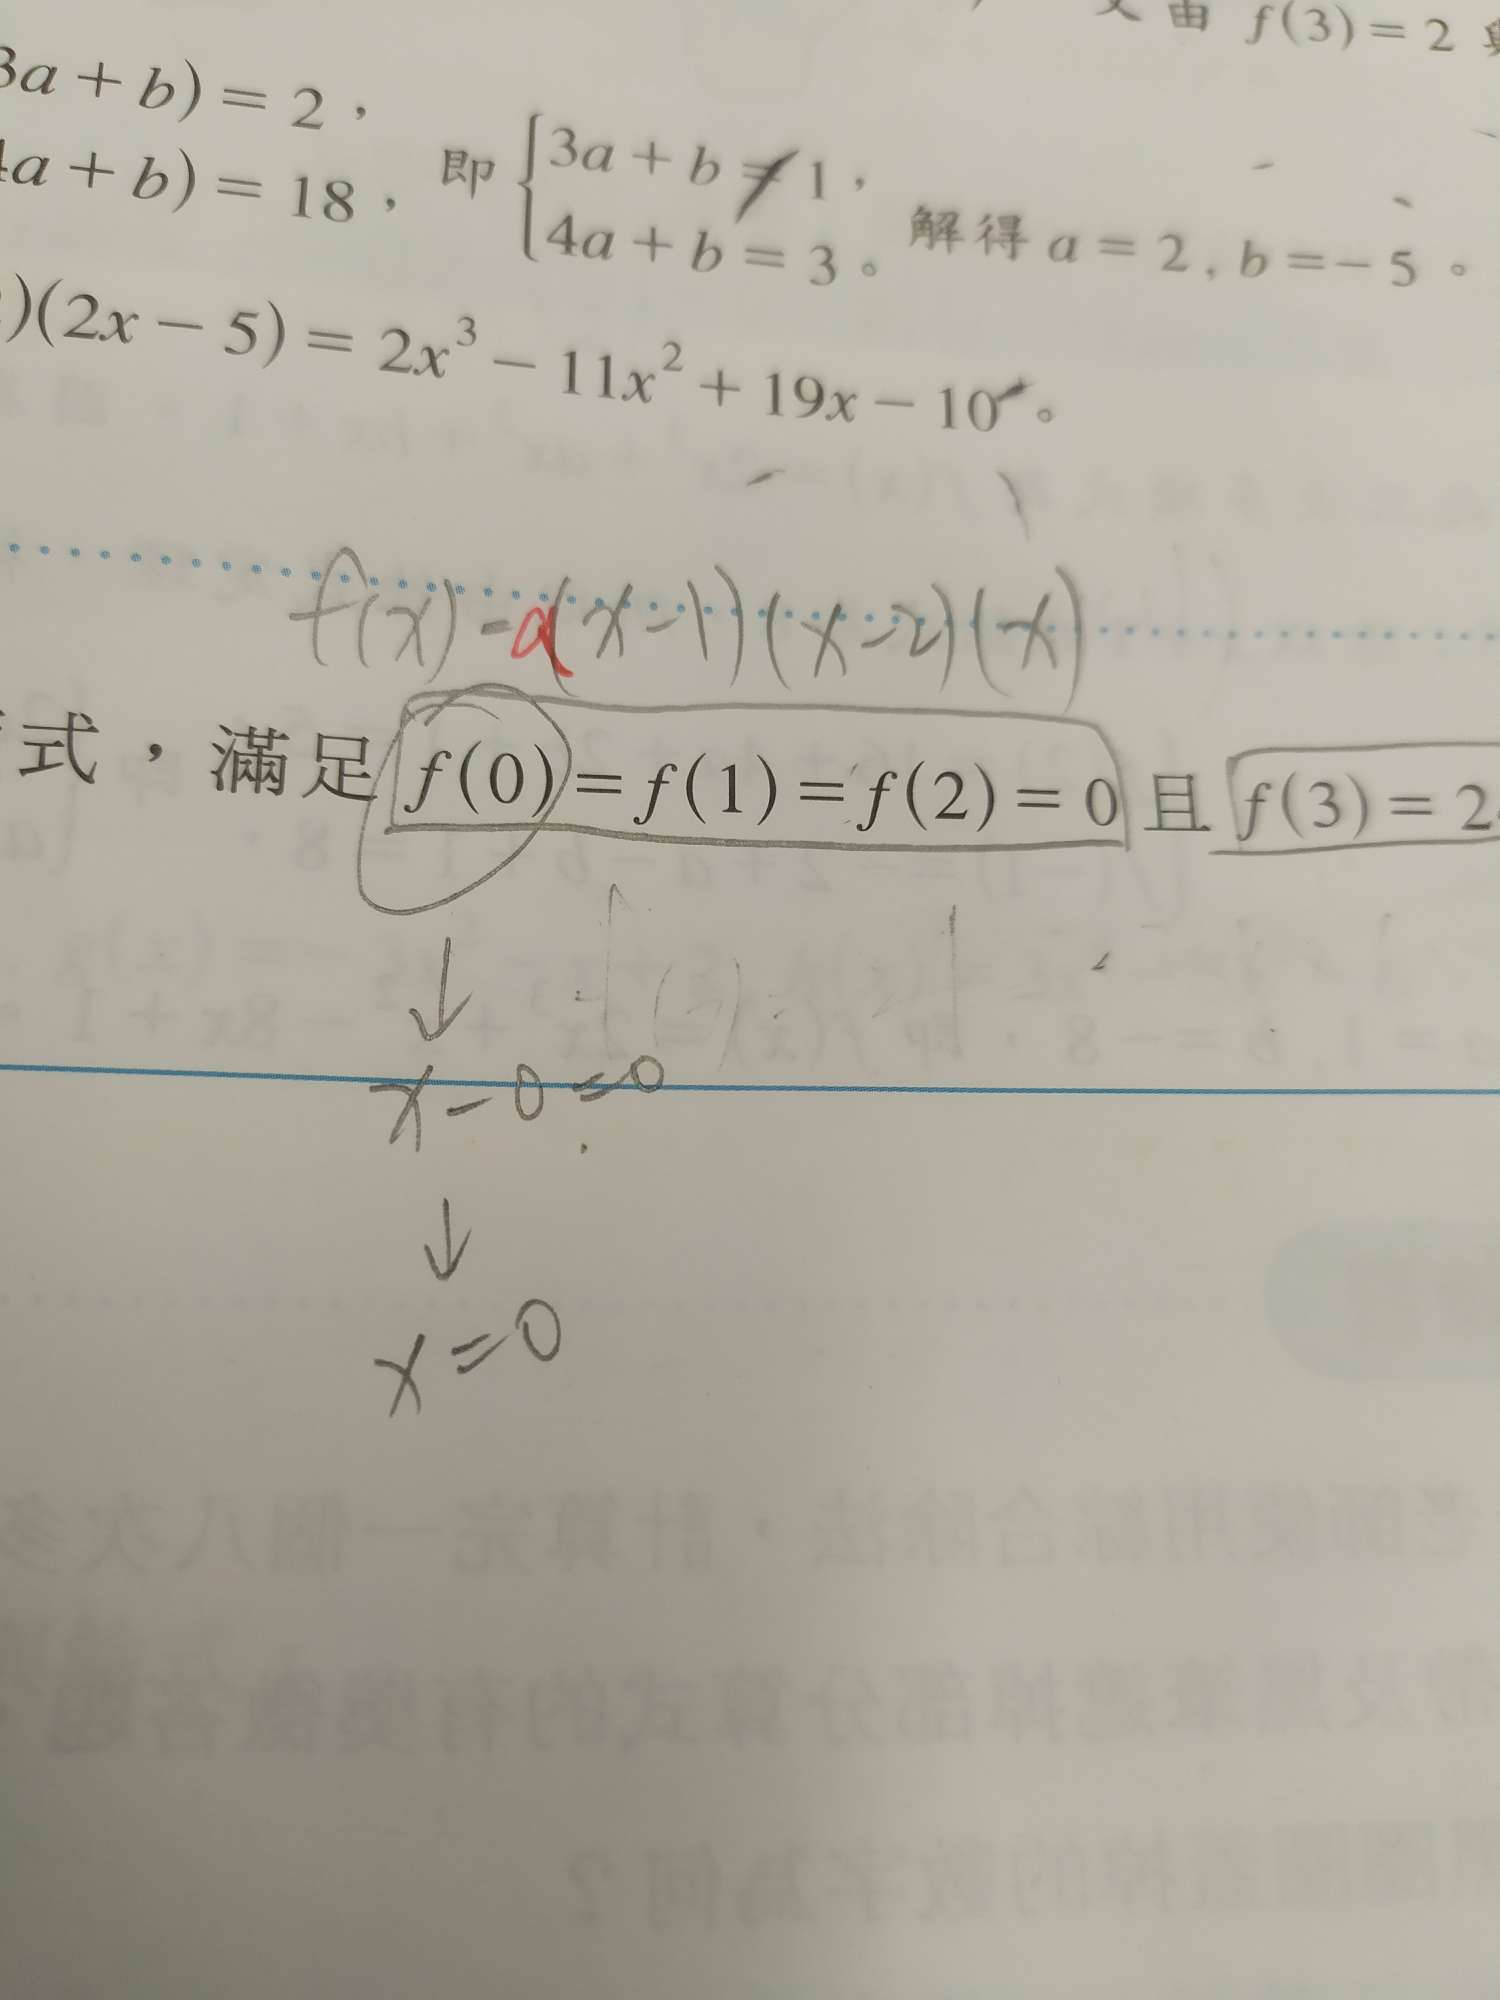 又由 f(3) = 2
3a + b) = 2，
4a + b) = 18，即 {3a + b = 1，
4a + b = 3。解得 a = 2, b = -5。
)(2x - 5) = 2x³ - 11x² + 19x - 10。
f(x) = a(x-1)(x-2)(x)
式，滿足 f(0) = f(1) = f(2) = 0 且 f(3) = 2
↓
x - 0 = 0
↓
x = 0